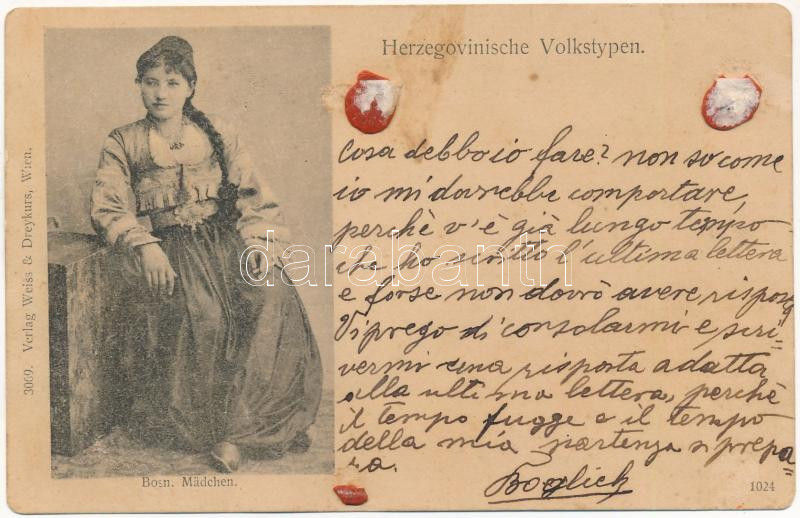 Herzegovinische Volkstypen.
3069. Verlag Weiss & Dreykurs, Wien.
Cosa debbo io fare? non so come
io mi dovrebbe comportare,
perchè v'è già lungo tempo
che ho scritto l'ultima lettera
e forse non dovrò avere risposta
Vi prego di consolarmi e scri=
vermi una risposta adatta
alla ultima lettera, perchè
il tempo fugge e il tempo
della mia partenza si prepa=
ra.
Bosn. Mädchen.
1024
darabanth